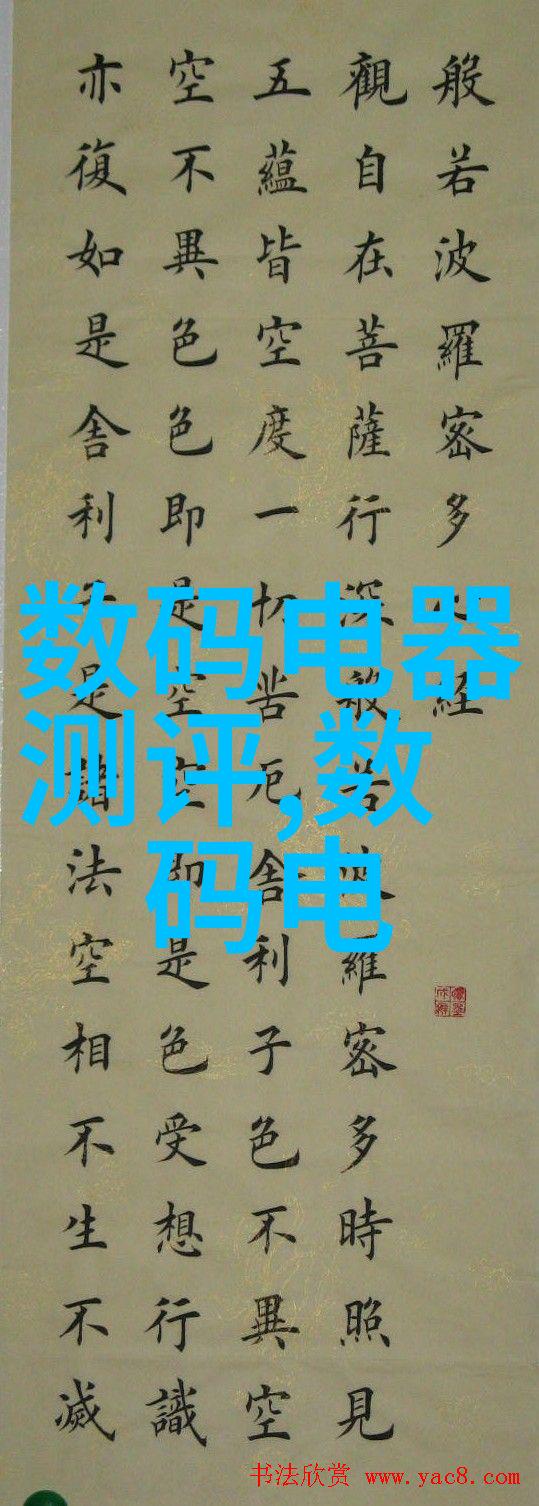 般若波羅密多心經
觀自在菩薩行深般若波羅密多時照見
五蘊皆空度一切苦厄舍利子色不異空
空不異色色即是空空即是色受想行識
亦復如是舍利子是諸法空相不生不滅
数码电器
测评,数
码电
书法欣赏 www.yac8.com